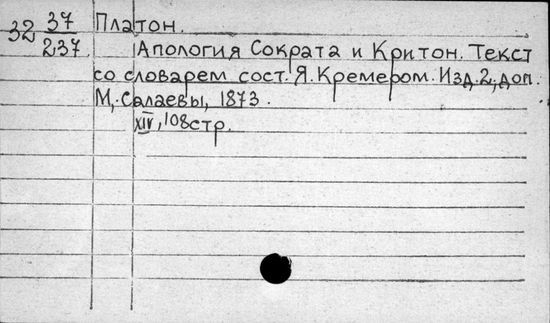 32 37/237 Платон.
Апология Сократа и Критон. Текст
со словарем сост. Я. Кремером. Изд. 2, доп.
М, Салаевы, 1873.
XIV, 108стр.